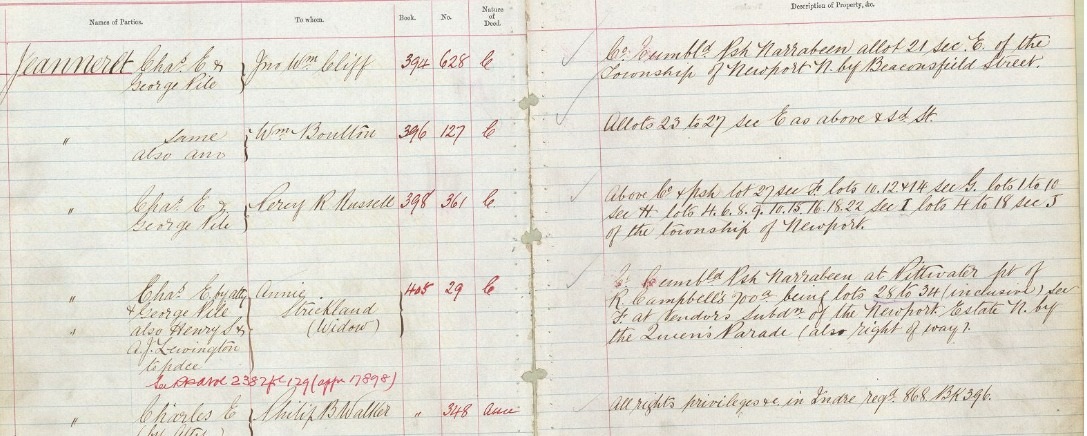 Names of Parties. To whom. Book. No. Nature of Deed. Description of Property, &c.
Jeanneret Chas. E & Jno Wm Cliff 394 628 C Co. Cumbld Psh Narrabeen allot 21 sec E. of the
George Pile Township of Newport N. by Beaconsfield Street.
" same Wm Boulton 396 127 C Allots 23 to 27 sec E as above & sd St.
also Ann
" Chas. E & Percy R Russell 398 361 C Above Co & psh lot 27 sec F. lots 10.12 & 14 sec G. lots 1 to 10
George Pile sec H lots 4.6.8.9.10.15.16.18.22 sec I lots 4 to 18 sec J
of the township of Newport.
" Chas. E by atty Annie 405 29 C Co. Cumbld Psh Narrabeen at Pittwater pt of
& George Pile Strickland R. Campbell's 700a being lots 28 to 34 (inclusive) sec
" also Henry S & (Widow) F at Vendors subdn of the Newport Estate N. by
A.J. Lewington the Queen's Parade (also right of way).
to pdce
2382 fo 129 (appn 17898)
" Charles E Philip B Walker " 348 All rights privileges &c. in Indre regd. 868 BK 396.